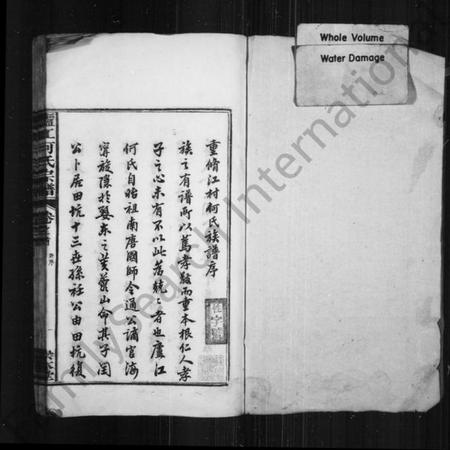 Whole Volume
Water Damage
重脩江村何氏族譜序
族之有譜所以篤孝敬而重本根仁人孝
子之心未有不以此為兢兢者也廬江
何氏自始祖南唐國師令通公謫官海
寧旋隱於婺東之芙蓉山命其子閏
公卜居田坑十三世孫社公由田坑復
廬江何氏宗譜
卷之首
FamilySearch International